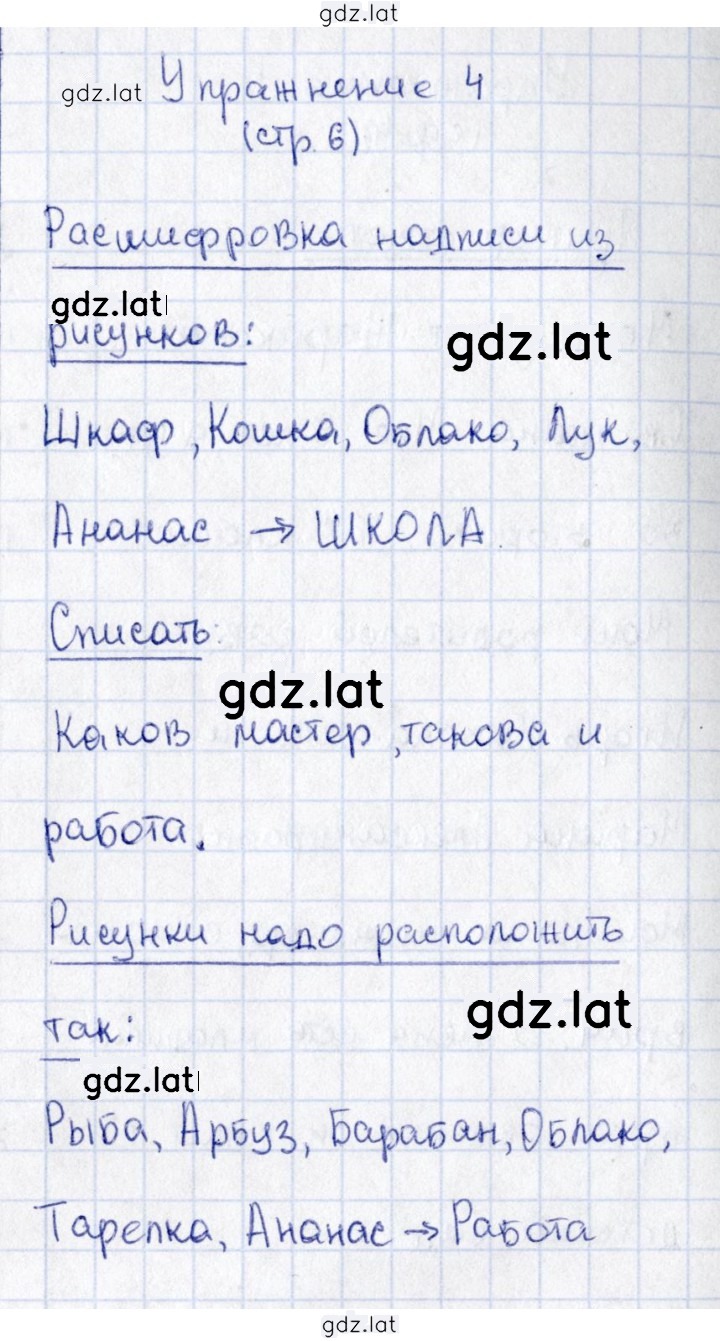 gdz.lat
gdz.lat Упражнение 4
(стр. 6)
Расшифровка надписи из
gdz.lat
рисунков:
gdz.lat
Шкаф, Кошка, Облако, Лук,
Ананас → ШКОЛА.
Списать:
gdz.lat
Каков мастер, такова и
работа.
Рисунки надо расположить
gdz.lat
так:
gdz.lat
Рыба, Арбуз, Барабан, Облако,
Тарелка, Ананас → Работа
gdz.lat